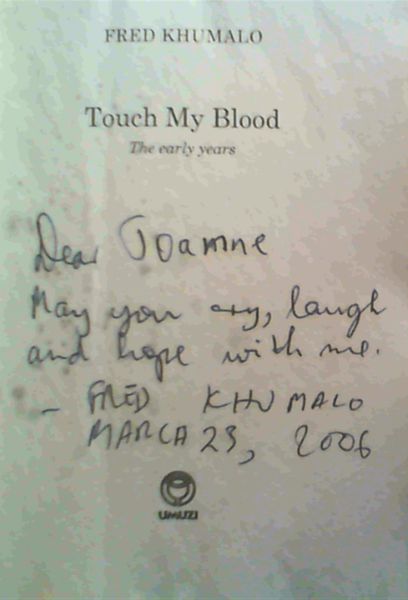 FRED KHUMALO
Touch My Blood
The early years
Dear Joanne
May you cry, laugh
and hope with me.
- FRED KHUMALO
MARCH 23, 2006
UMUZI